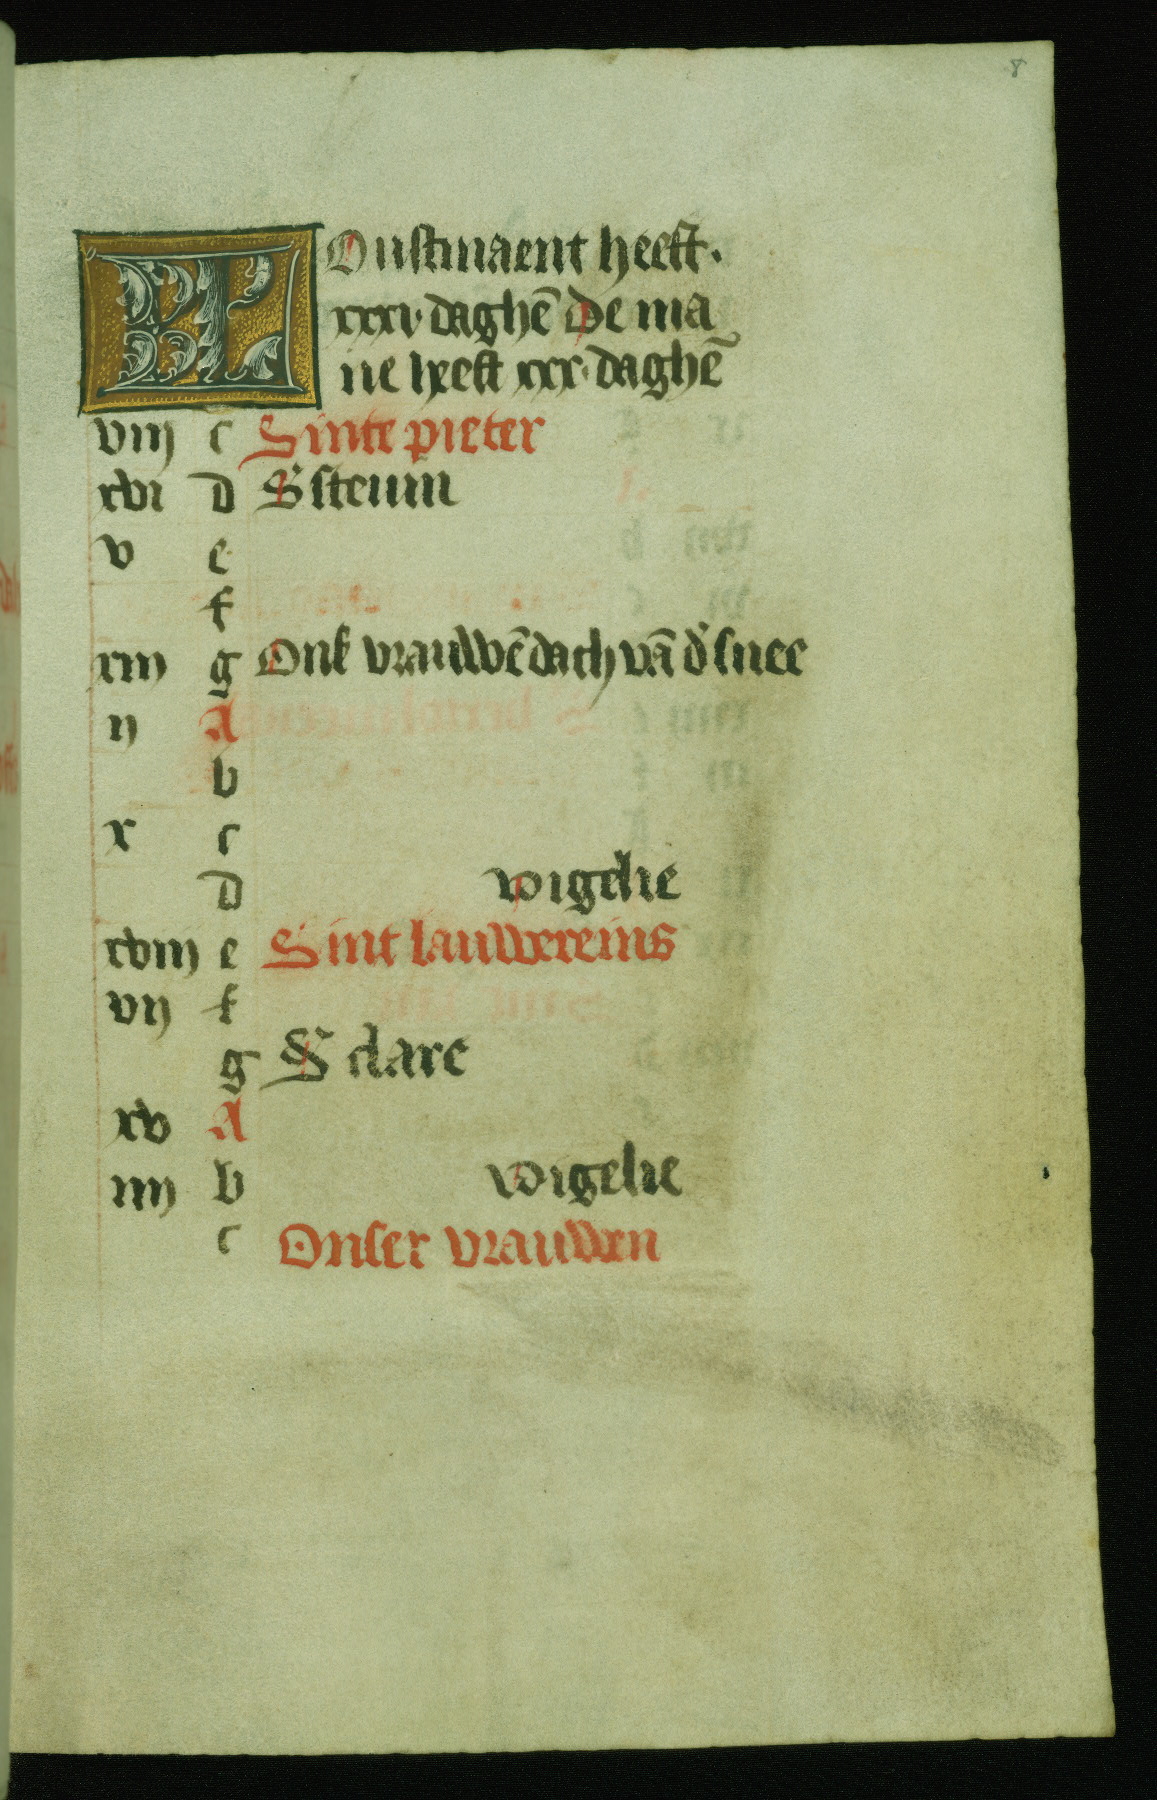 8
KL Oustmaent heeft.
xxxi. daghē De ma
ne heeft xxx. daghē
viij c Sinte pieter
xvi d S steuin
v e
f
xiij g Onſ vrauwēdach vā d' snee
ij A
b
x c
d vvigelie
xviij e Sint lauwereins
vij f
g S clare
xv A
iiij b vvigelie
c Onser vrauwen